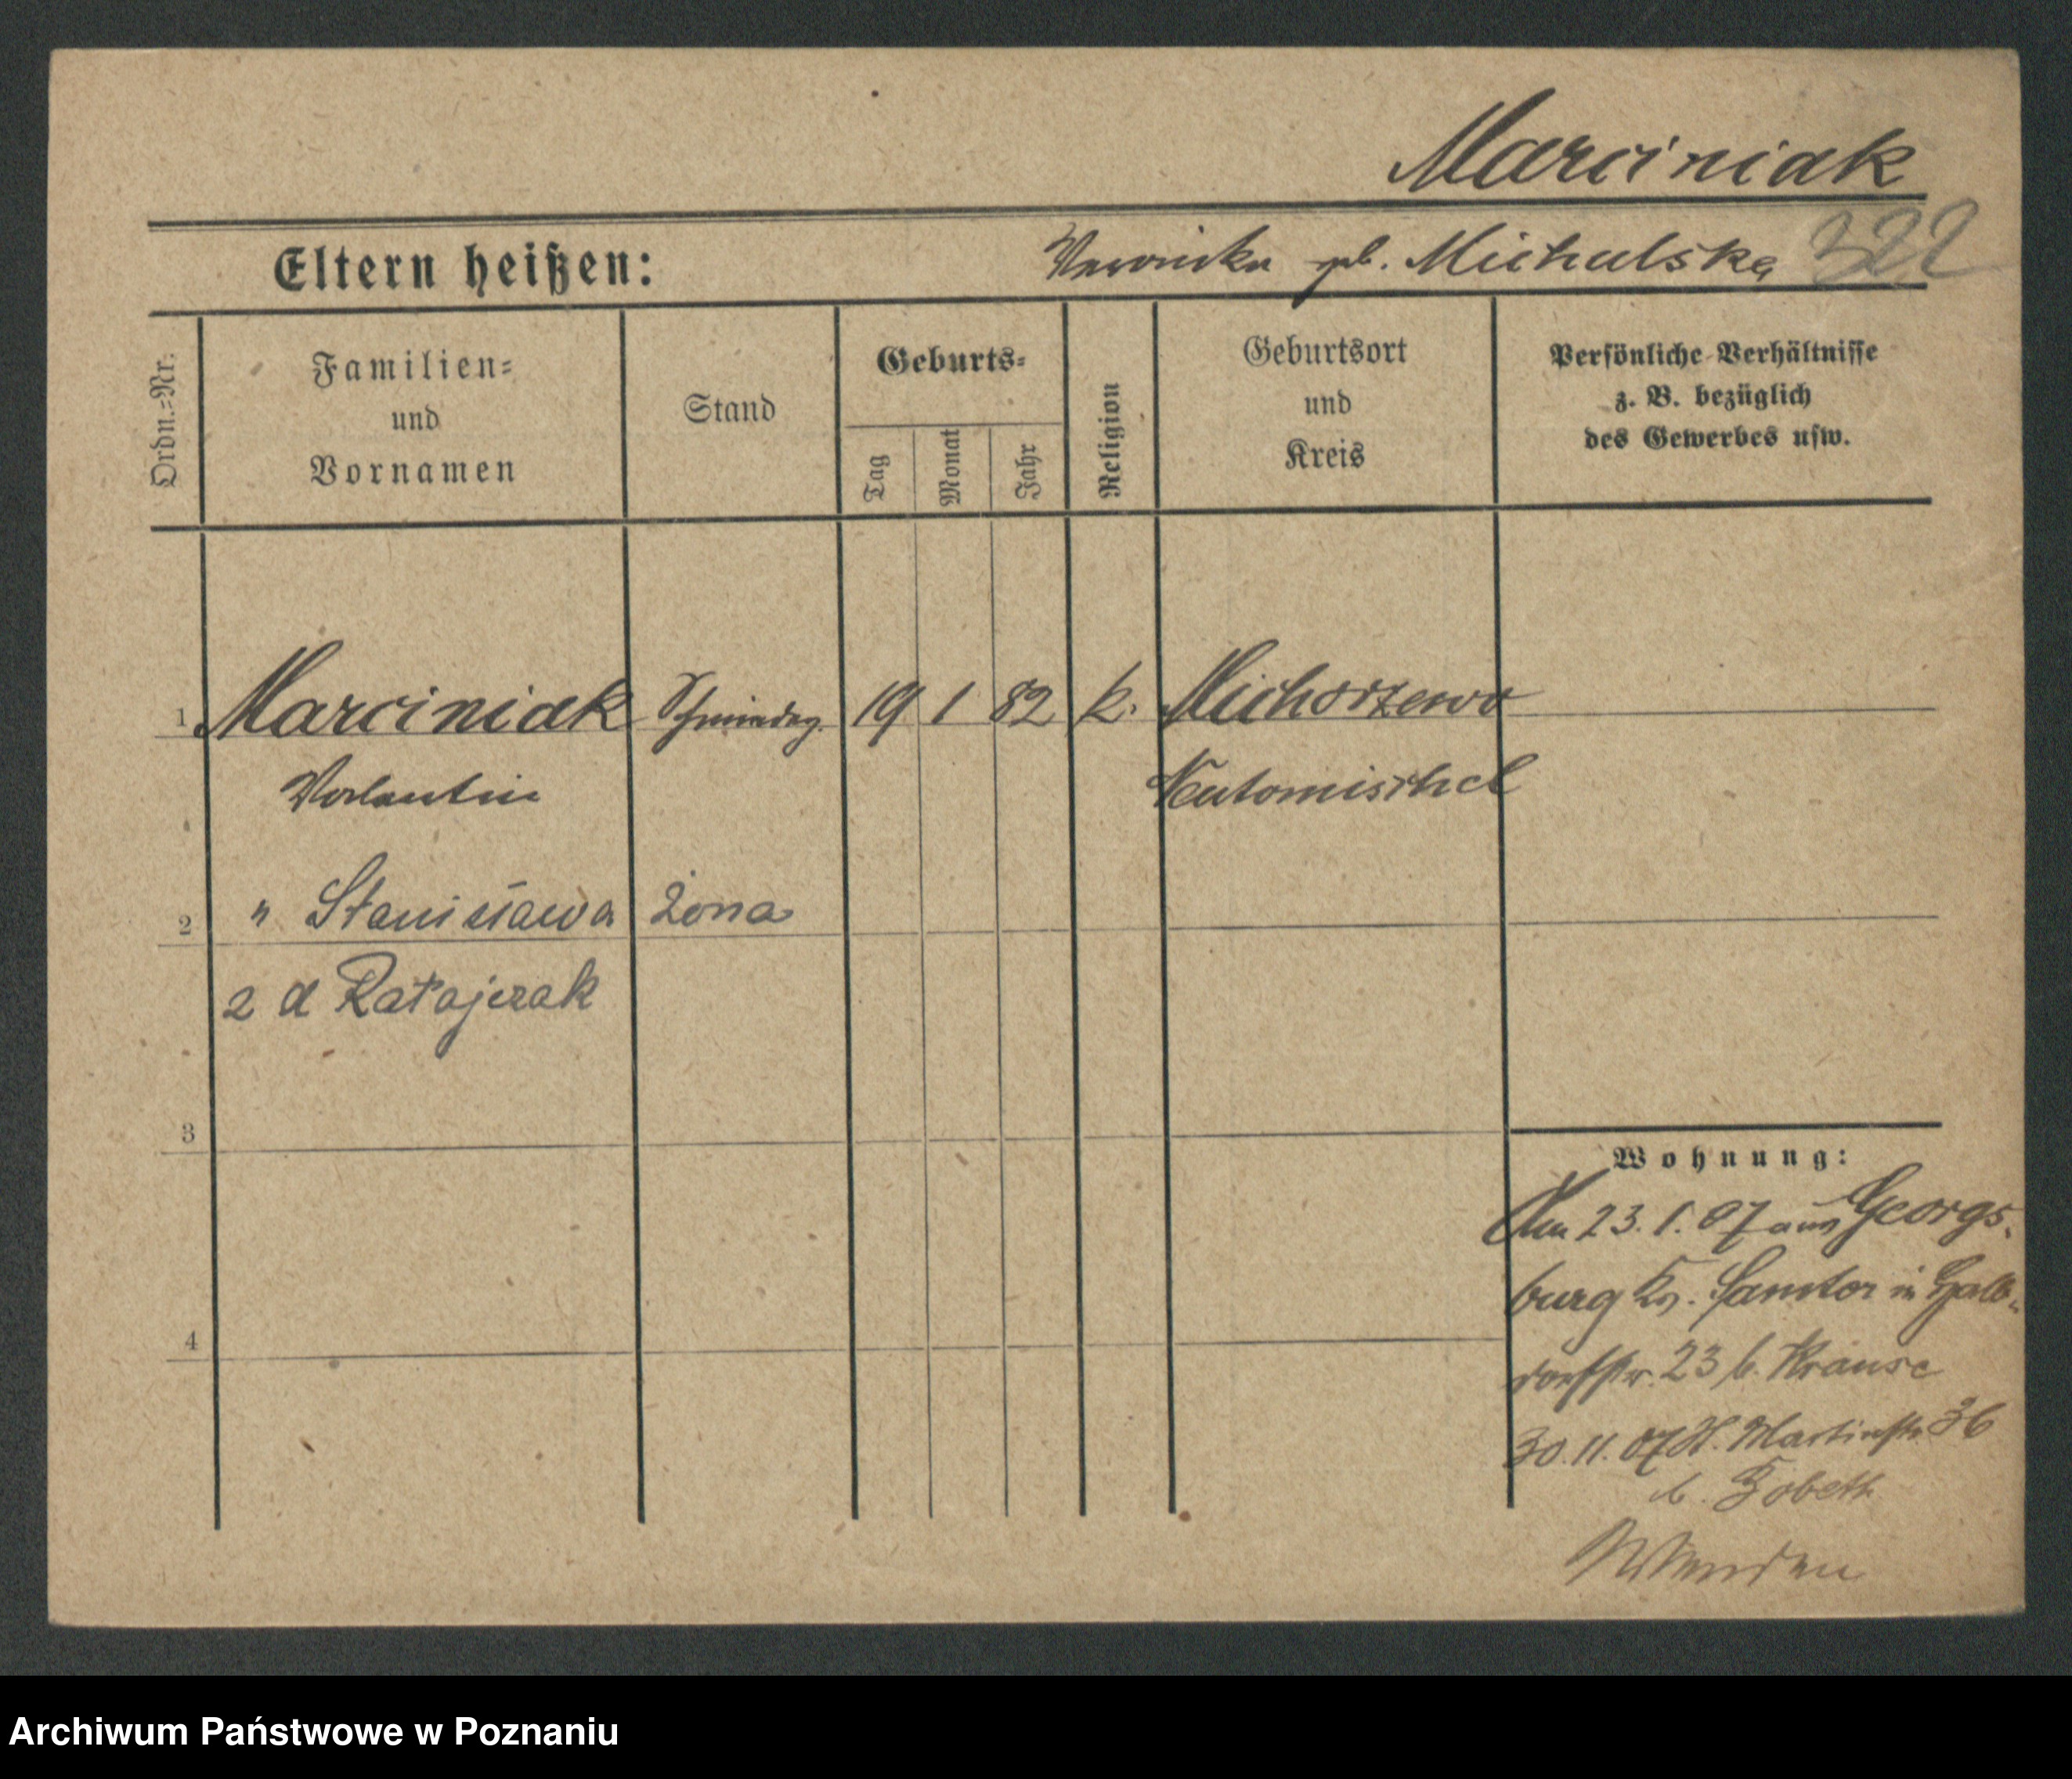 Marciniak
Eltern heißen:
Veronika geb. Michalska 322
Ordn.=Nr.
Familien=
und
Vornamen
Stand
Geburts=
Tag
Monat
Jahr
Religion
Geburtsort
und
Kreis
Persönliche Verhältnisse
z. B. bezüglich
des Gewerbes usw.
1 Marciniak 19 1 82 k. Michorzewo
Valentin Neutomischel
2 " Stanisława żona
2 d Ratajczak
3
Wohnung:
Am 23.1.07 aus Georgs-
burg Kr. Samter in
4
dorffstr. 23 b. Krause
30.11.07 St. Martinstr. 36
b.
Archiwum Państwowe w Poznaniu